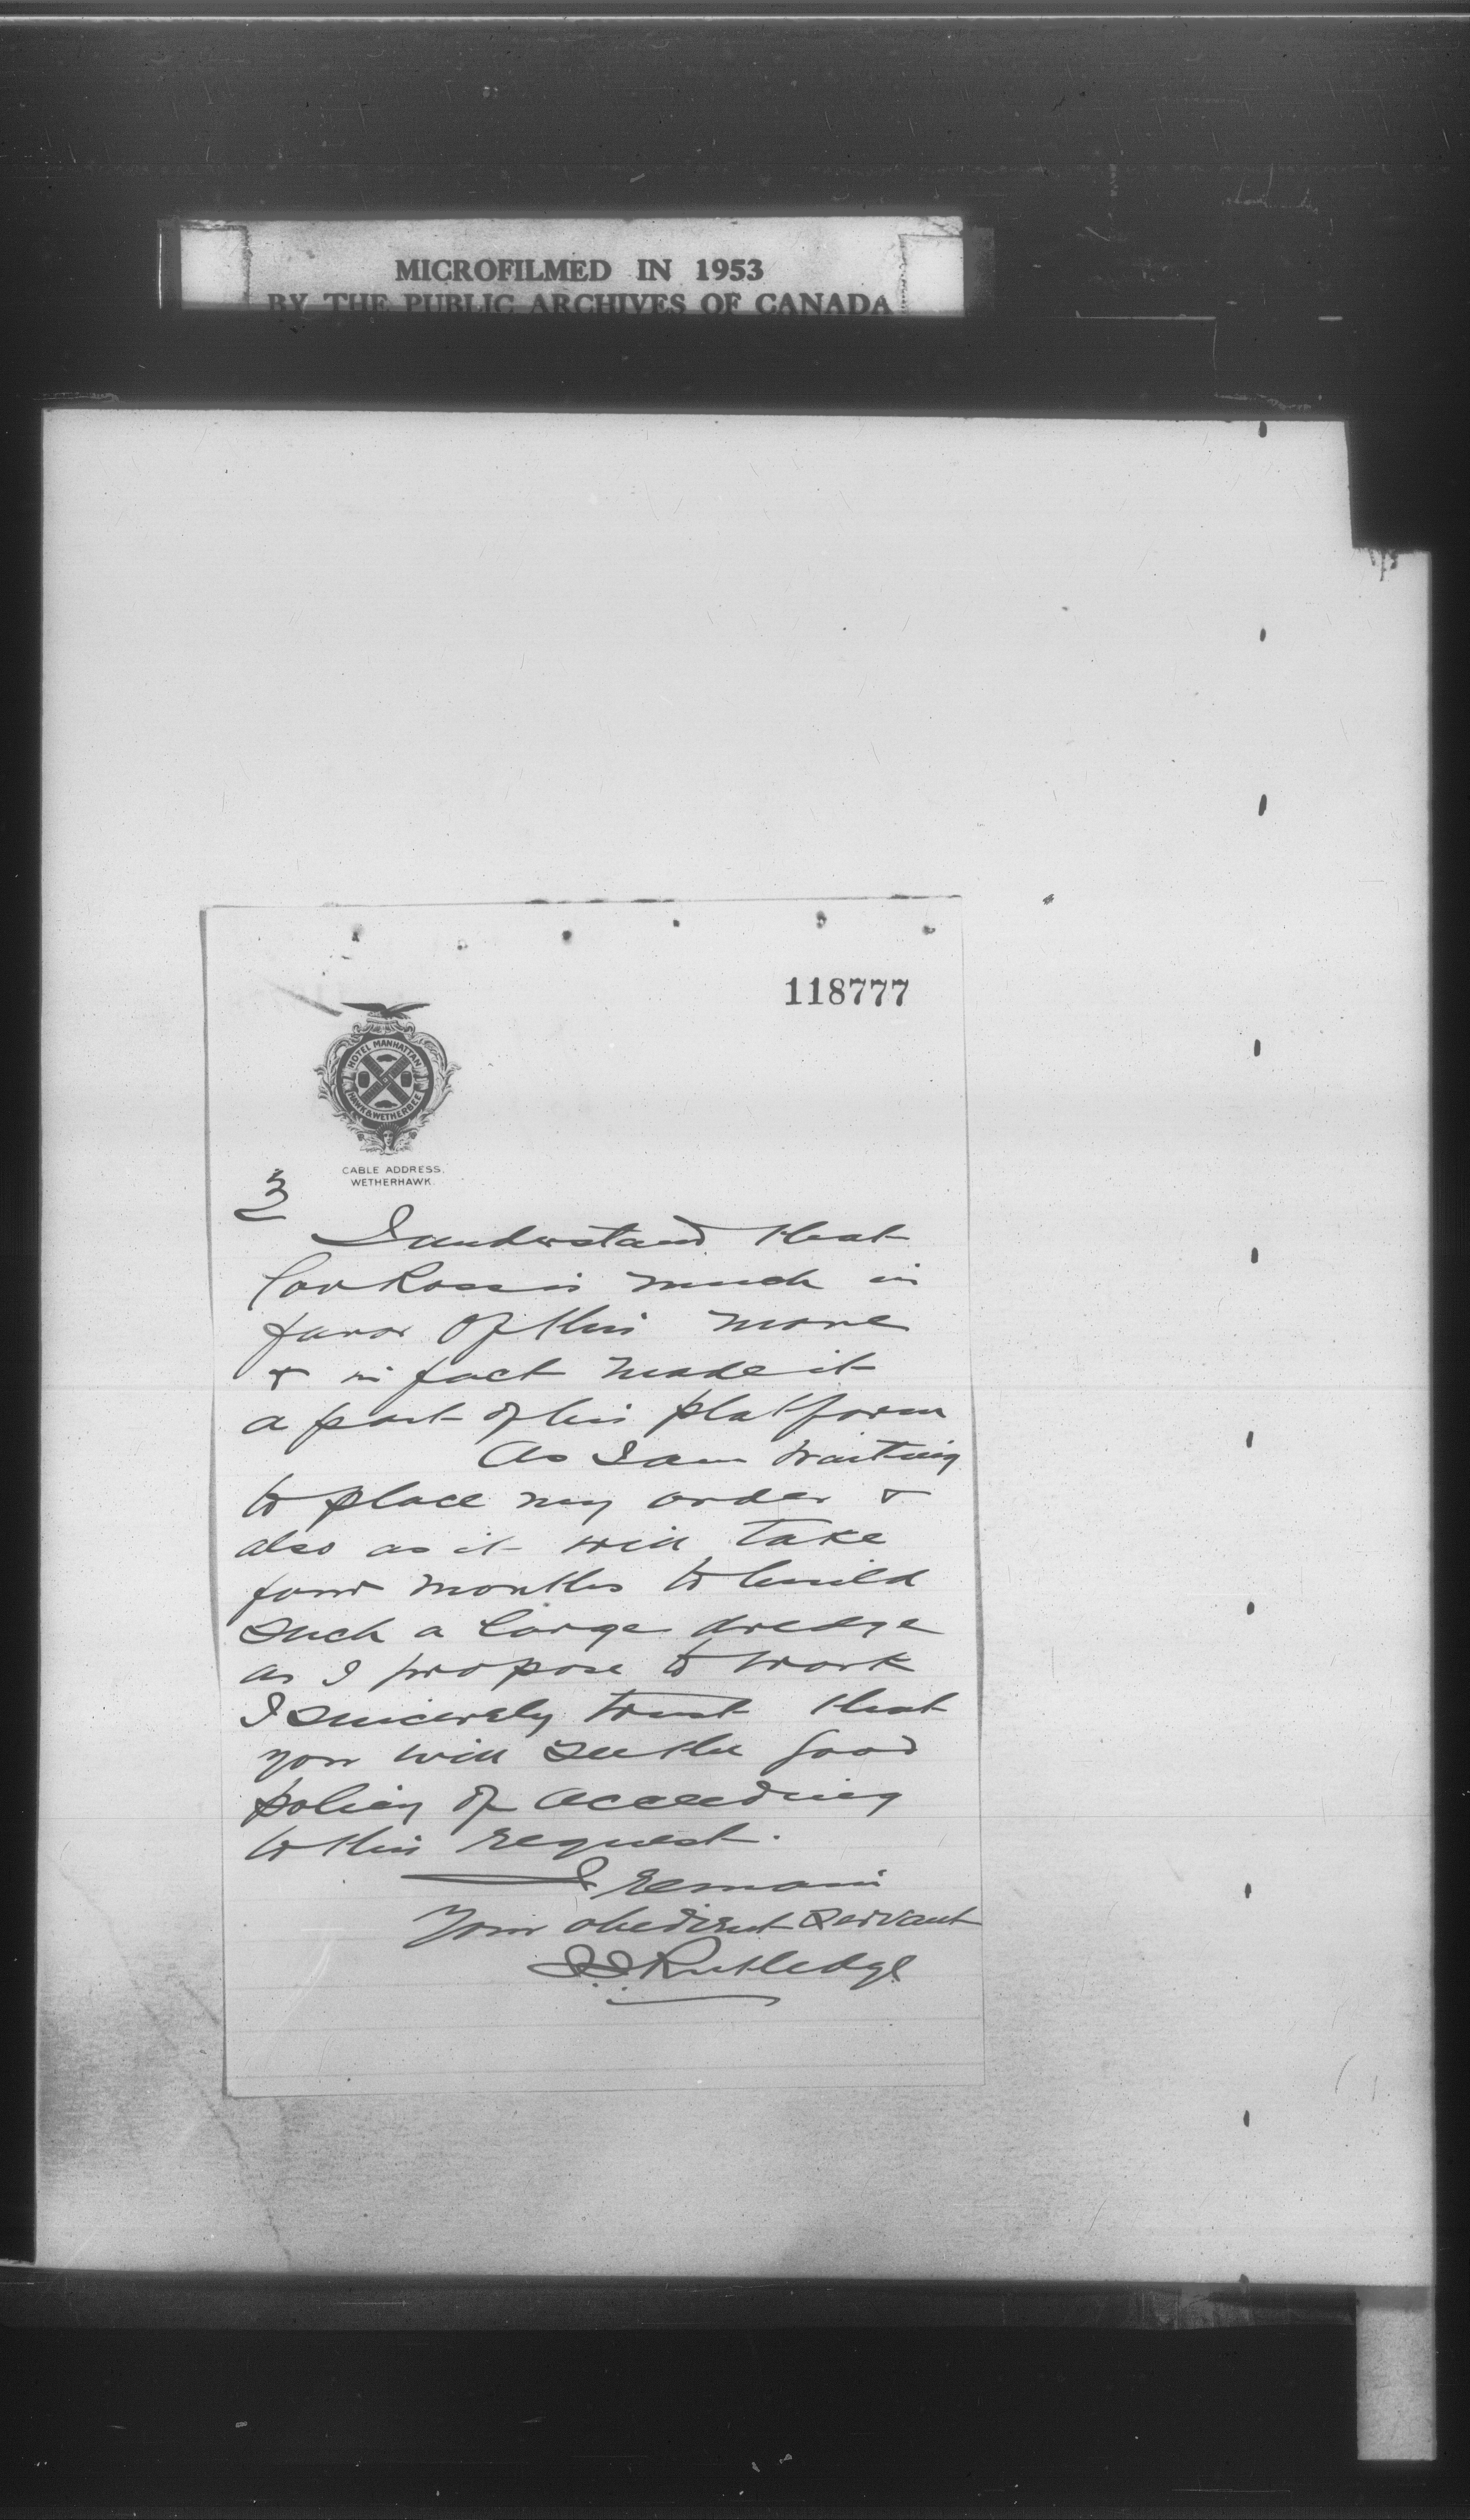 MICROFILMED IN 1953
BY THE PUBLIC ARCHIVES OF CANADA
118777
HOTEL MANHATTAN
HAWK & WETHERBEE
CABLE ADDRESS,
WETHERHAWK.
3
I understand that
Gov Ross is much in
favor of this move
& in fact made it
a part of his platform
As I am waiting
to place my order &
also as it will take
four months to build
such a large dredge
as I propose to work
I sincerely trust that
you will see the good
policy of acceeding
to this request.
I remain
Your obedient servant
Rutledge